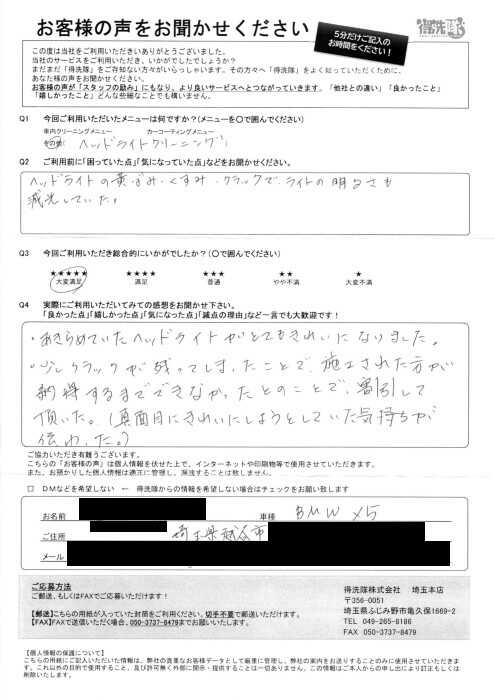 お客様の声をお聞かせください
5分だけご記入の
お時間をください!
得洗隊
この度は当社をご利用いただきいありがとうございました。
当社のサービスをご利用いただき、いかがでしたでしょうか?
まだまだ「得洗隊」をご存知ない方々がいらっしゃいます。その方々へ「得洗隊」をよく知っていただくために、
あなた様の声をお聞かせください。
お客様の声が「スタッフの励み」にもなり、より良いサービスへとつながっていきます。「他社との違い」「良かったこと」
「嬉しかったこと」どんな些細なことでも構いません。
Q1 今回ご利用いただいたメニューは何ですか?(メニューを〇で囲んでください)
車内クリーニングメニュー カーコーティングメニュー
その他( ヘッドライトクリーニング )
Q2 ご利用前に「困っていた点」「気になっていた点」などをお聞かせください。
ヘッドライトの黄ばみ・くすみ・クラックで、ライトの明るさも
減光していた。
Q3 今回ご利用いただき総合的にいかがでしたか?(〇で囲んでください)
★★★★★ ★★★★ ★★★ ★★ ★
大変満足 満足 普通 やや不満 大変不満
Q4 実際にご利用いただいてみての感想をお聞かせ下さい。
「良かった点」「嬉しかった点」「気になった点」「減点の理由」など一言でも大歓迎です!
・あきらめていたヘッドライトがとてもきれいになりました。
・少しクラックが残ってしまったことで、施工された方が
納得するまでできなかったとのことで、割引して
頂いた。(真面目にきれいにしようとしていた気持ちが
伝わった。)
ご協力いただき有難うございます。
こちらの「お客様の声」は個人情報を伏せた上で、インターネットや印刷物等で使用させていただきます。
また、お預かりした個人情報は適正に管理し、漏洩することは致しません。
□ DMなどを希望しない ← 得洗隊からの情報を希望しない場合はチェックをお願い致します
お名前 車種 BMW X5
ご住所 埼玉県越谷市
メール
ご応募方法
ご郵送、もしくはFAXでご応募いただけます!
【郵送】こちらの用紙が入っていた封筒をご利用ください。切手不要で郵送いただけます。
【FAX】FAXで送信いただく場合、050-3737-8479までお願いいたします。
得洗隊株式会社 埼玉本店
〒356-0051
埼玉県ふじみ野市亀久保1669-2
TEL 049-265-8186
FAX 050-3737-8479
【個人情報の保護について】
こちらの用紙にご記入いただいた情報は、弊社の貴重なお客様データとして厳重に管理し、弊社の案内をお送りすることのみに使用させていただきま
す。これ以外の目的で使用すること、及び許可無く外部に開示・提供することは一切ありません。この情報はご本人からの申し出により訂正もしくは
削除いたします。